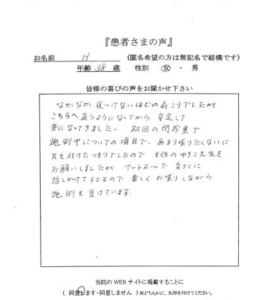 『患者さまの声』
お名前 H (匿名希望の方は無記名で結構です)
年齢 38 歳 性別 女・男
皆様の喜びの声をお聞かせ下さい
なかなか 寝つけないほどの 肩こりでしたが
こちらへ 通うようになってから 安定して
楽になってきました。 初回の問診票で
施術中についての項目で、あまり喋りたくないに
丸を付けたつもりでしたので 女性のゆきこ先生を
お願いしましたが アットホームで 気さくに
話しかけて下さるので 楽しく お喋りしながら
施術を 受けています。
当院の WEB サイトに掲載することに
( 同意します・同意しません ) おどちらかに、丸印を付けてください。